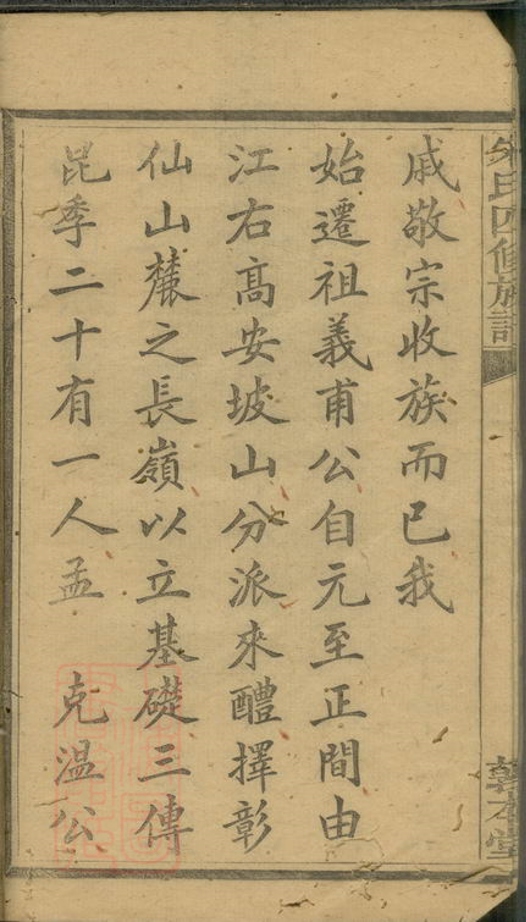 朱氏四修族譜
敦本堂
戚敬宗收族而已我
始遷祖義甫公自元至正間由
江右高安坡山分派來醴擇彰
仙山麓之長嶺以立基礎三傳
昆季二十有一人孟　克溫公